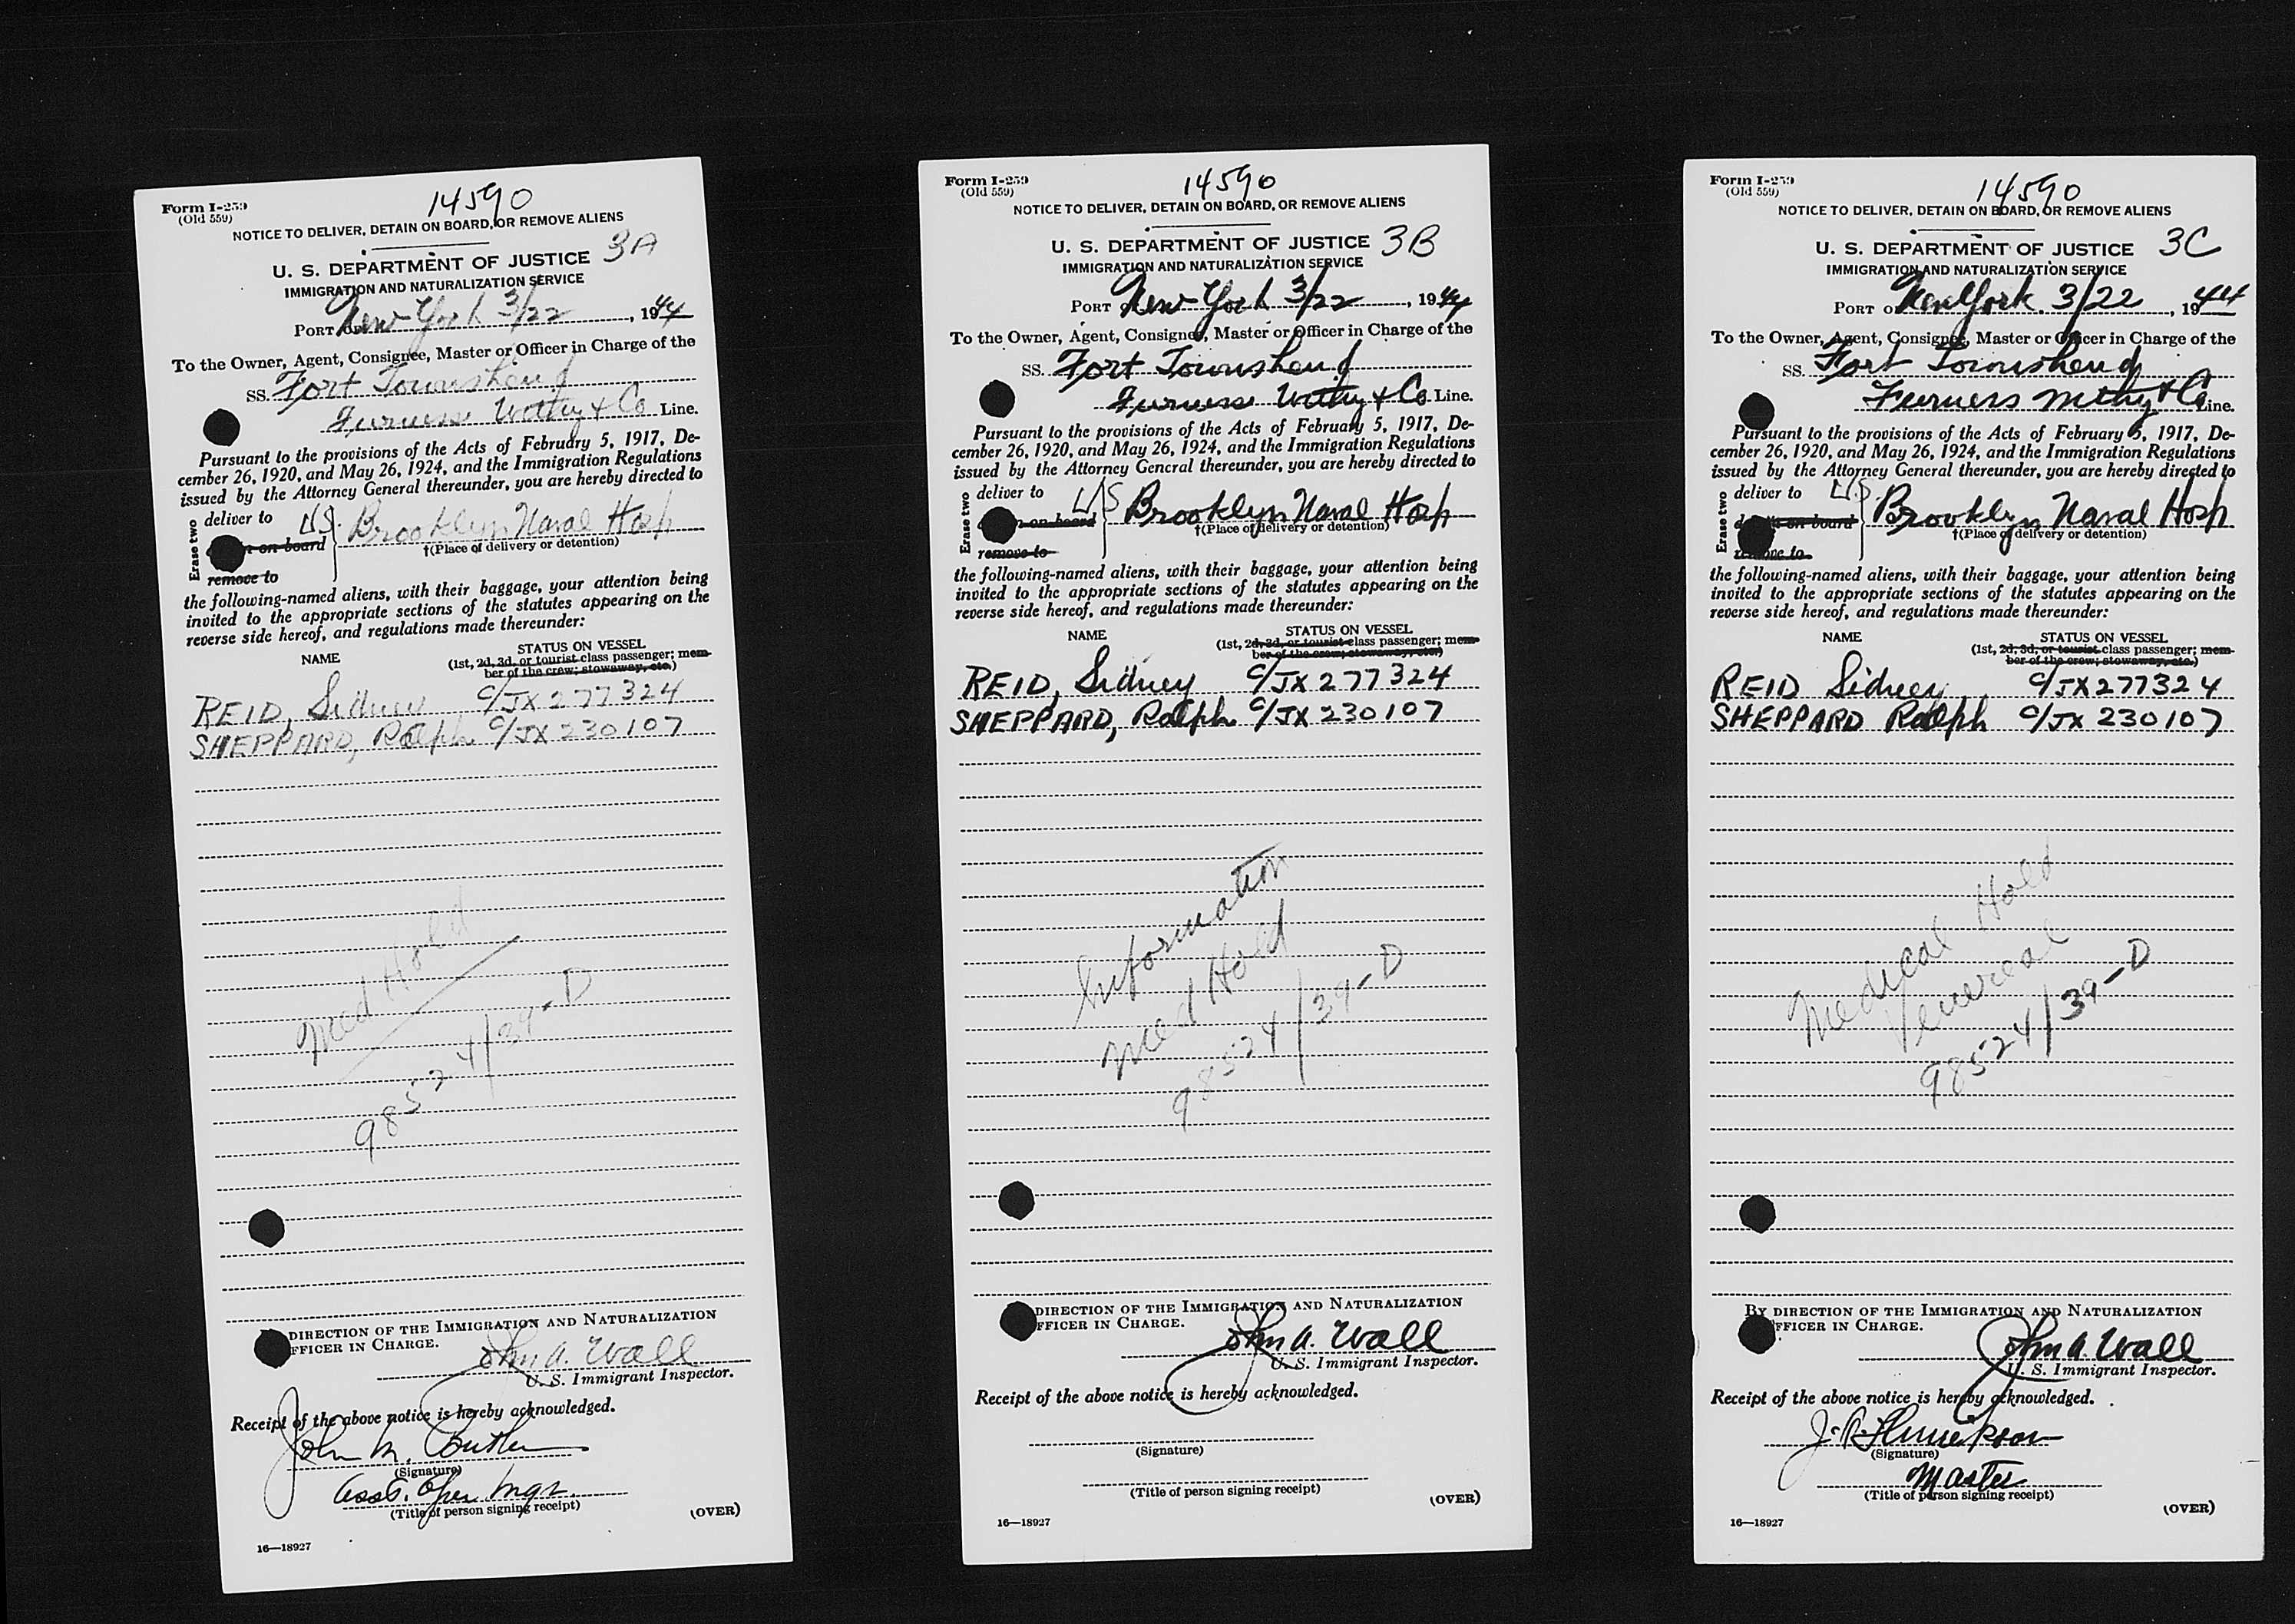 Form I-259
(Old 559)
14590
NOTICE TO DELIVER, DETAIN ON BOARD, OR REMOVE ALIENS
U. S. DEPARTMENT OF JUSTICE 3A
IMMIGRATION AND NATURALIZATION SERVICE
PORT OF New York 3/22, 1944
To the Owner, Agent, Consignee, Master or Officer in Charge of the
SS. Fort Townshend
Furness Withy & Co Line.
Pursuant to the provisions of the Acts of February 5, 1917, De-
cember 26, 1920, and May 26, 1924, and the Immigration Regulations
issued by the Attorney General thereunder, you are hereby directed to
Erase two
deliver to U.S. Brooklyn Naval Hosp
n on board
†(Place of delivery or detention)
remove to
the following-named aliens, with their baggage, your attention being
invited to the appropriate sections of the statutes appearing on the
reverse side hereof, and regulations made thereunder:
NAME
STATUS ON VESSEL
(1st, 2d, 3d, or tourist class passenger; mem-
ber of the crew; stowaway, etc.)
REID, Sidney C/JX 277324
SHEPPARD, Ralph C/JX 230107
Med Hold
98524/39-D
DIRECTION OF THE IMMIGRATION AND NATURALIZATION
FFICER IN CHARGE.
John A. Wall
U. S. Immigrant Inspector.
Receipt of the above notice is hereby acknowledged.
John M. Butler
(Signature)
Asst. Oper. Mgr.
(Title of person signing receipt)
(OVER)
16—18927
Form I-259
(Old 559)
14590
NOTICE TO DELIVER, DETAIN ON BOARD, OR REMOVE ALIENS
U. S. DEPARTMENT OF JUSTICE 3B
IMMIGRATION AND NATURALIZATION SERVICE
PORT OF New York 3/22, 1944
To the Owner, Agent, Consignee, Master or Officer in Charge of the
SS. Fort Townshend
Furness Withy & Co Line.
Pursuant to the provisions of the Acts of February 5, 1917, De-
cember 26, 1920, and May 26, 1924, and the Immigration Regulations
issued by the Attorney General thereunder, you are hereby directed to
Erase two
deliver to US Brooklyn Naval Hosp
n on board
†(Place of delivery or detention)
remove to
the following-named aliens, with their baggage, your attention being
invited to the appropriate sections of the statutes appearing on the
reverse side hereof, and regulations made thereunder:
NAME
STATUS ON VESSEL
(1st, 2d, 3d, or tourist class passenger; mem-
ber of the crew; stowaway, etc.)
REID, Sidney C/JX 277324
SHEPPARD, Ralph C/JX 230107
Information
Med Hold
98524/39-D
DIRECTION OF THE IMMIGRATION AND NATURALIZATION
FFICER IN CHARGE.
John A. Wall
U. S. Immigrant Inspector.
Receipt of the above notice is hereby acknowledged.
(Signature)
(Title of person signing receipt)
(OVER)
16—18927
Form I-259
(Old 559)
14590
NOTICE TO DELIVER, DETAIN ON BOARD, OR REMOVE ALIENS
U. S. DEPARTMENT OF JUSTICE 3C
IMMIGRATION AND NATURALIZATION SERVICE
PORT OF New York 3/22, 1944
To the Owner, Agent, Consignee, Master or Officer in Charge of the
SS. Fort Townshend
Furness Withy & Co Line.
Pursuant to the provisions of the Acts of February 5, 1917, De-
cember 26, 1920, and May 26, 1924, and the Immigration Regulations
issued by the Attorney General thereunder, you are hereby directed to
Erase two
deliver to U.S. Brooklyn Naval Hosp
on board
†(Place of delivery or detention)
remove to
the following-named aliens, with their baggage, your attention being
invited to the appropriate sections of the statutes appearing on the
reverse side hereof, and regulations made thereunder:
NAME
STATUS ON VESSEL
(1st, 2d, 3d, or tourist class passenger; mem-
ber of the crew; stowaway, etc.)
REID Sidney C/JX 277324
SHEPPARD Ralph C/JX 230107
Medical Hold
Venereal
98524/39-D
BY DIRECTION OF THE IMMIGRATION AND NATURALIZATION
FFICER IN CHARGE.
John A. Wall
U. S. Immigrant Inspector.
Receipt of the above notice is hereby acknowledged.
(Signature)
Master
(Title of person signing receipt)
(OVER)
16—18927